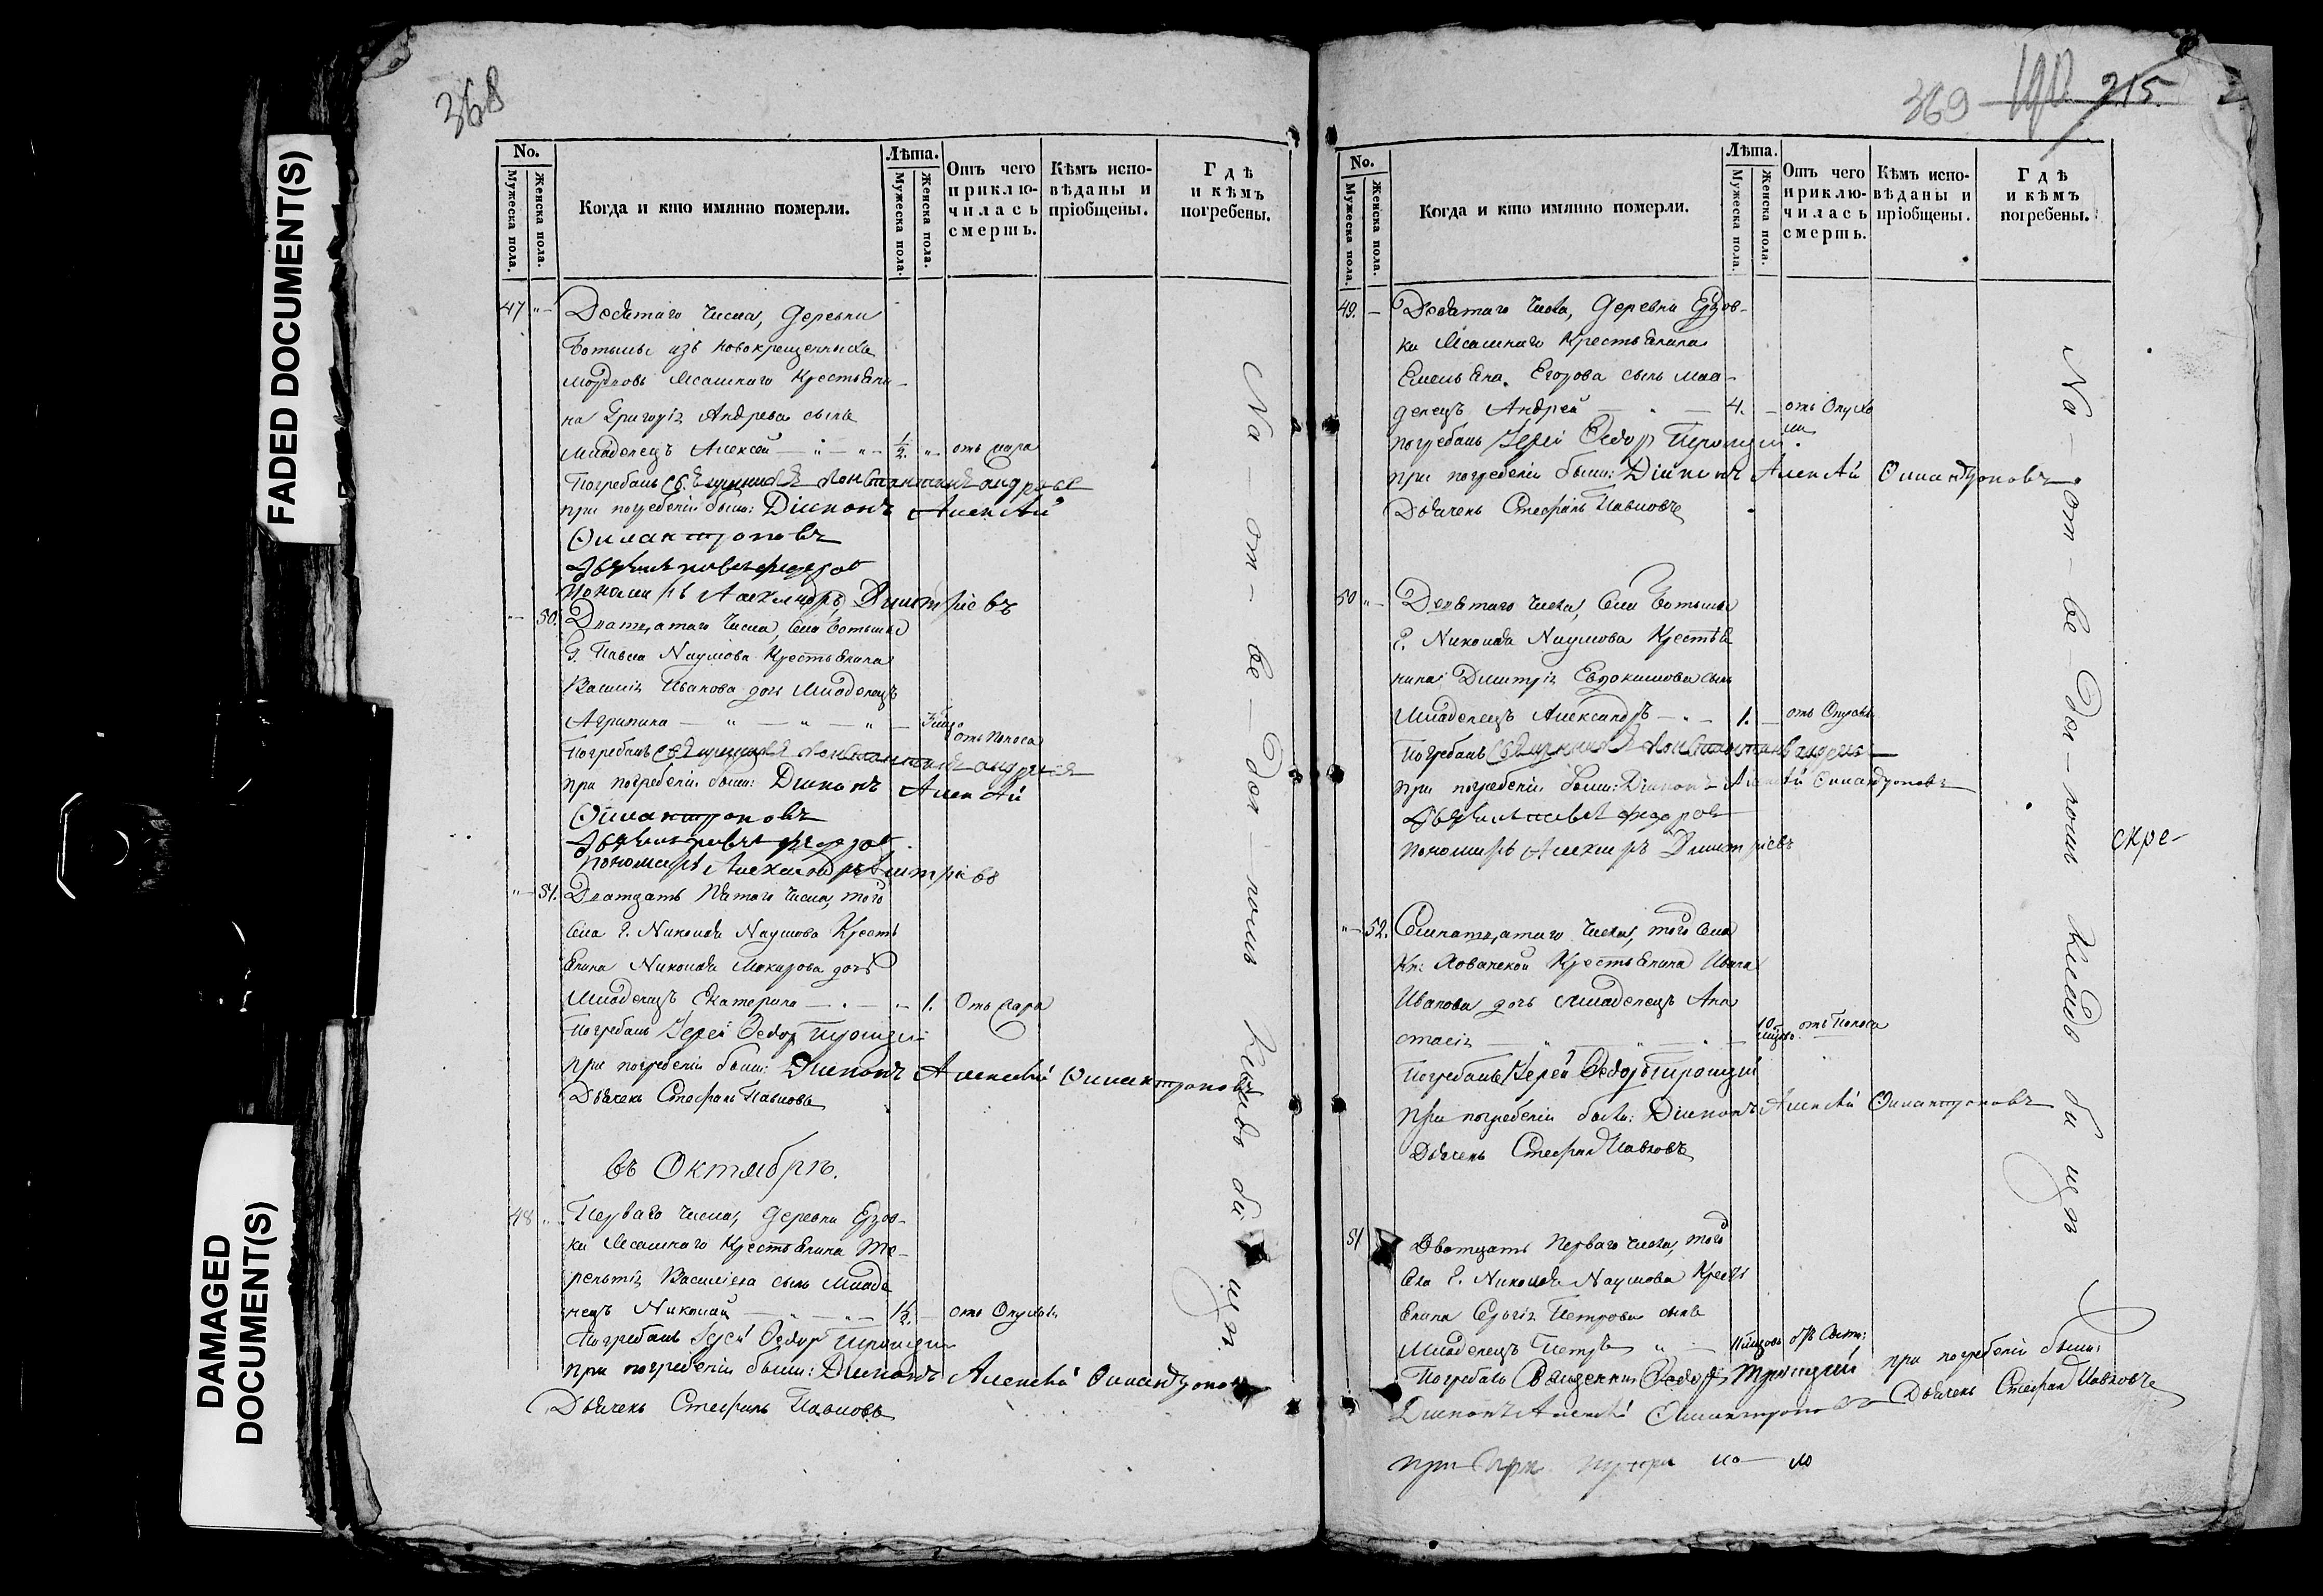 FADED DOCUMENT(S)
DAMAGED
DOCUMENT(S)
368
No.
Мужеска пола.
Женска пола.
Когда и кто имянно померли.
Лѣта.
Мужеска пола.
Женска пола.
Отъ чего
приклю-
чилась
смерть.
Кѣмъ испо-
вѣданы и
пріобщены.
Гдѣ
и кѣмъ
погребены.
47 „ Девятаго числа, деревни
изъ новокрещенныхъ
мордовъ Ясашнаго крестьяни-
на Григорія Андреева сынъ
младенецъ Алексей 1/2. „ отъ жара
Погребалъ Священникъ Константинъ Андреевъ
при погребеніи были: Діаконъ Алексѣй
Филантроповъ
Дьячекъ Павелъ Федоровъ
Пономарь Александръ Димитріевъ
50. Дватцатаго числа, села
Г. Павла Наумова крестьянина
Василія Иванова дочь младенецъ
Агрипина отъ поноса
Погребалъ Священникъ Константинъ Андреевъ
при погребеніи были: Діаконъ Алексѣй
Филантроповъ
Дьячекъ Павелъ Федоровъ
Пономарь Александръ Димитріевъ
„ 51. Дватцать пятаго числа, того
села г. Николая Наумова кресть
янина Николая Макарова дочь
младенецъ Екатерина 1. отъ жара
Погребалъ Іерей Ѳедоръ Троицкій
при погребеніи были: Діаконъ Алексѣй Филантроповъ
Дьячекъ Стефанъ Павловъ
въ Октябрѣ.
48 „ Перваго числа, деревни Ерзов-
ки Ясашнаго крестьянина Те-
рентія Васильева сынъ младе
нецъ Николай 1 1/2. отъ опухоли
Погребалъ Іерей Ѳедоръ Троицкій
при погребеніи были: Діаконъ Алексѣй Филантроповъ
Дьячекъ Стефанъ Павловъ
369 215
No.
Мужеска пола.
Женска пола.
Когда и кто имянно померли.
Лѣта.
Мужеска пола.
Женска пола.
Отъ чего
приклю-
чилась
смерть.
Кѣмъ испо-
вѣданы и
пріобщены.
Гдѣ
и кѣмъ
погребены.
49. Девятаго числа, деревни Ерзов-
ки Ясашнаго крестьянина
Емельяна Егорова сынъ мла-
денецъ Андрей 4. отъ опухо
ли
погребалъ Іерей Ѳедоръ Троицкій.
при погребеніи были: Діаконъ Алексѣй Филантроповъ
Дьячекъ Стефанъ Павловъ
50 „ Девятаго числа, села
г. Николая Наумова крестья
нина Димитрія Евдокимова сынъ
младенецъ Александръ 1. отъ опухоли
Погребалъ Священникъ Константинъ Андреевъ
при погребеніи были: Діаконъ Алексѣй Филантроповъ
Дьячекъ Павелъ Федоровъ
Пономарь Александръ Димитріевъ
„ 52. Семнатцатаго числа, того села
Кн: Хованской крестьянина Ивана
Иванова дочь младенецъ Ана
стасія 10 отъ поноса
Погребалъ Іерей Ѳедоръ Троицкій
при погребеніи были: Діаконъ Алексѣй Филантроповъ
Дьячекъ Стефанъ Павловъ
51 Дватцать перваго числа, того
села г. Николая Наумова кресть
янина Сергія Петрова сынъ
младенецъ Петръ
Погребалъ Священникъ Ѳедоръ Троицкій при погребеніи были:
Діаконъ Алексѣй Филантроповъ Дьячекъ Стефанъ Павловъ
скре-